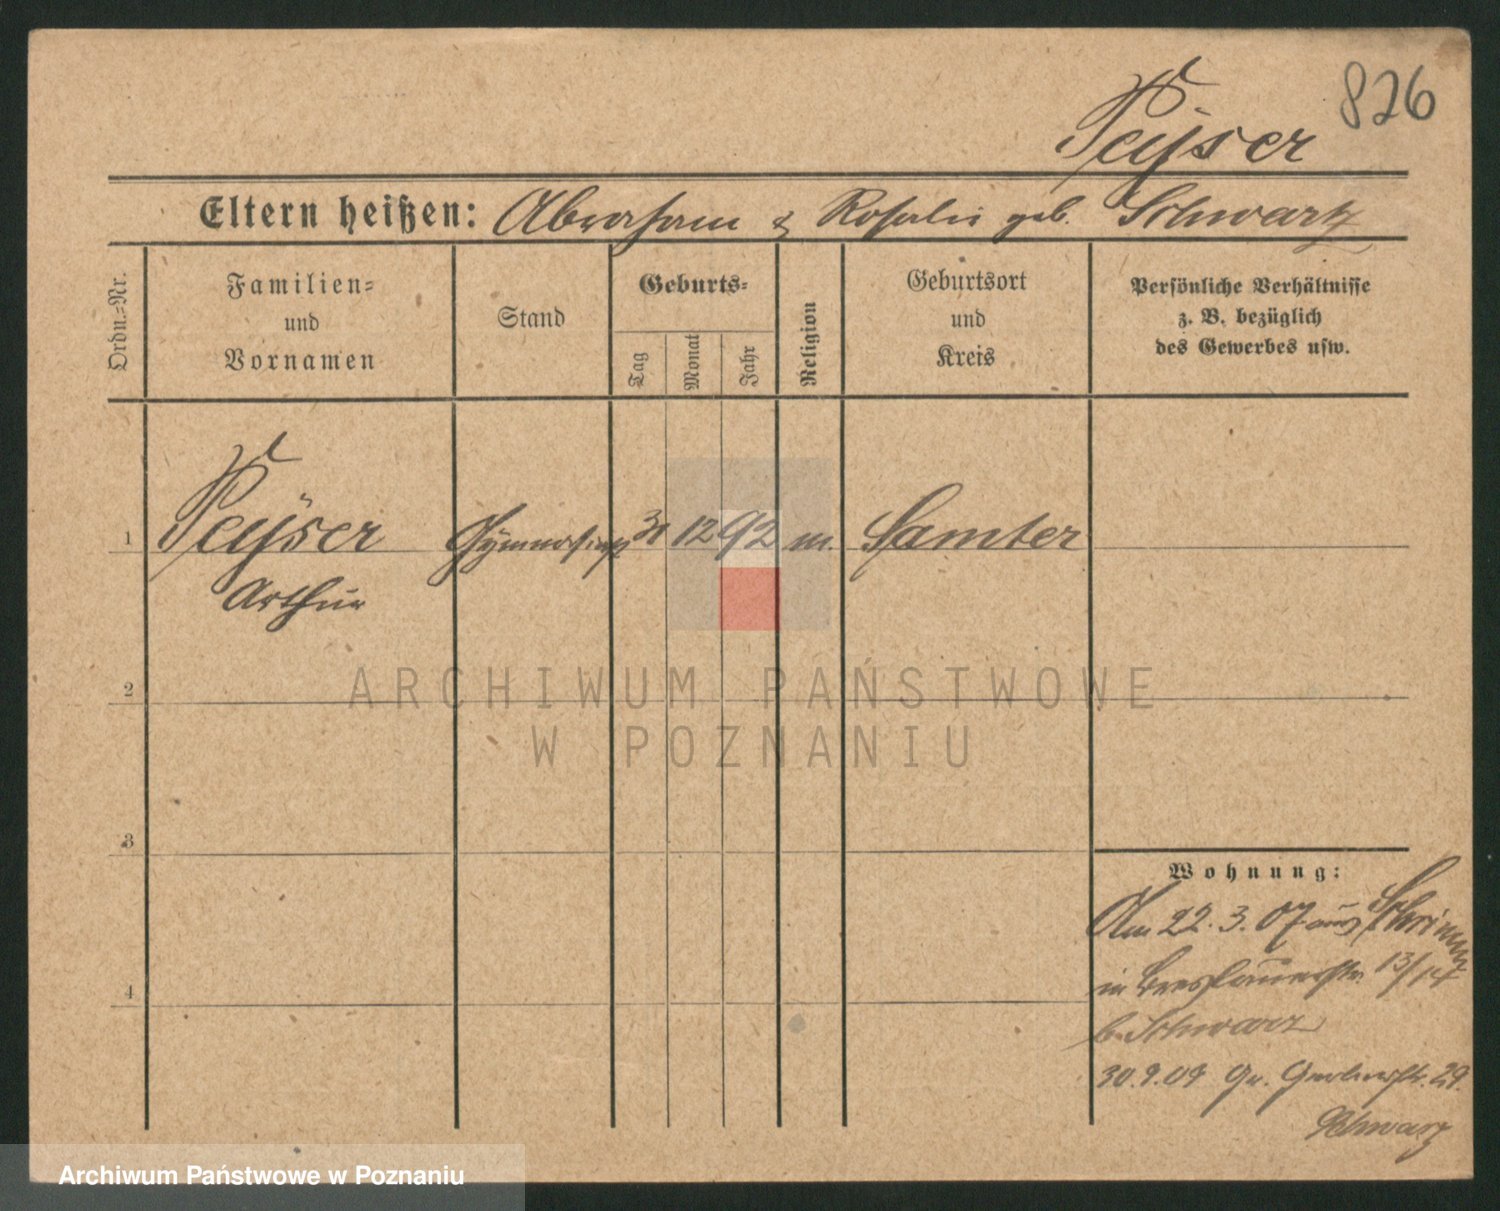 826
Peÿser
Eltern heißen: Abraham & Rosalie geb. Schwarz
Ordn.-Nr.
Familien-
und
Vornamen
Stand
Geburts-
Tag
Monat
Jahr
Religion
Geburtsort
und
Kreis
Persönliche Verhältnisse
z. B. bezüglich
des Gewerbes usw.
1 Peÿser Gymnasiast 31 12 92 m. Samter
Arthur
2
ARCHIWUM PAŃSTWOWE
W POZNANIU
3
Wohnung:
Am 22. 3. 07 aus Schrimm
in Breslauerstr. 13/14
b. Schwarz
4
30.9.09 Gr. Gerberstr. 29.
Schwarz
Archiwum Państwowe w Poznaniu